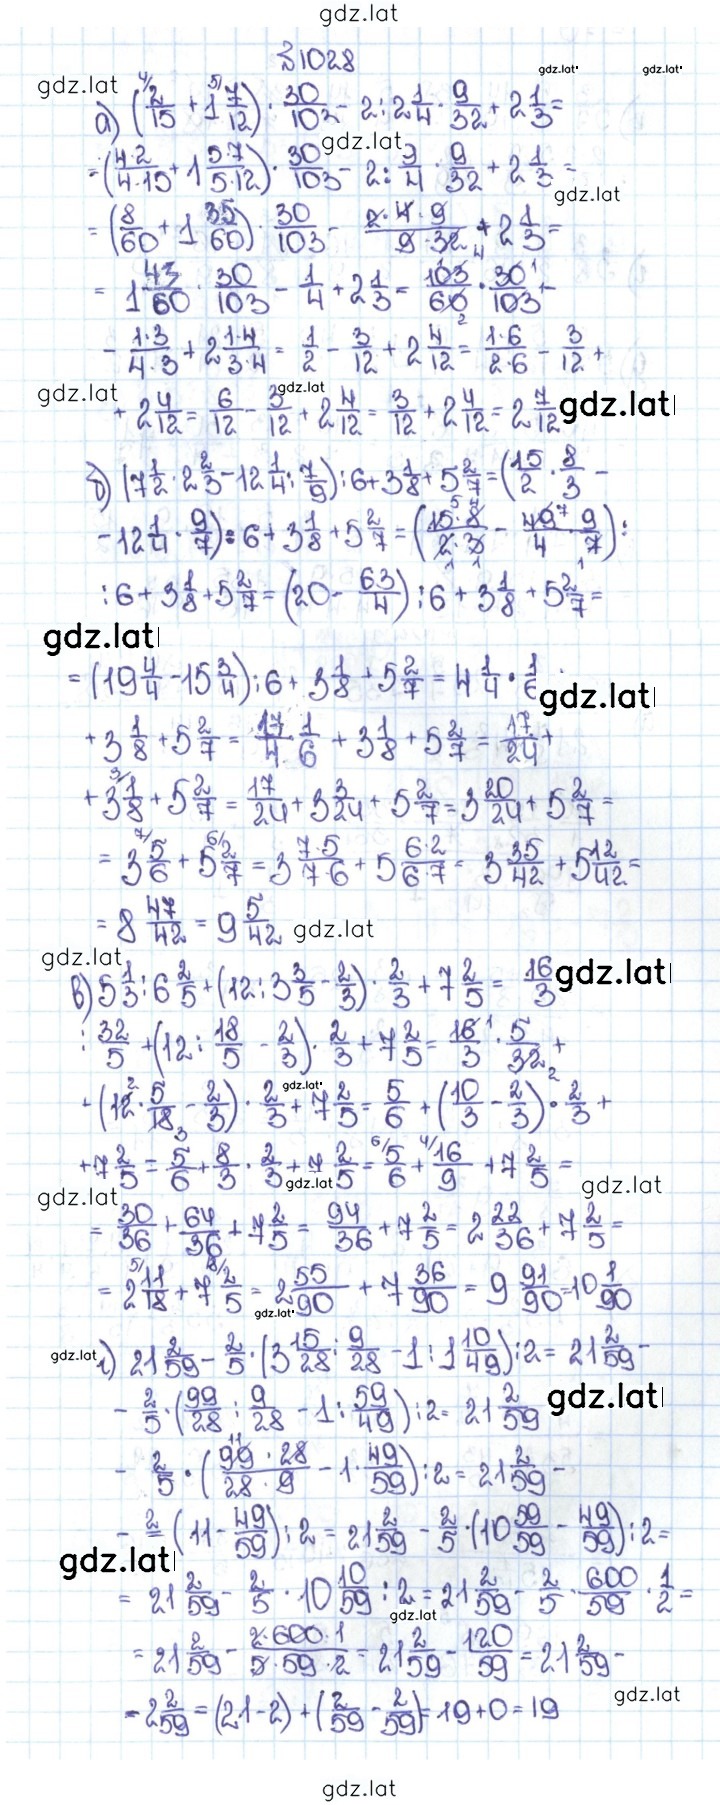 gdz.lat
№1028
gdz.lat gdz.lat gdz.lat
а) (2/15 + 1 7/12) · 30/103 - 2 : 2 1/4 · 9/32 + 2 1/3 =
gdz.lat
= (4·2/4·15 + 1 5·7/5·12) · 30/103 - 2 : 9/4 · 9/32 + 2 1/3 =
gdz.lat
= (8/60 + 1 35/60) · 30/103 - 2·4·9/9·32 + 2 1/3 =
= 1 43/60 · 30/103 - 1/4 + 2 1/3 = 103/60 · 30/103 -
- 1·3/4·3 + 2 1·4/3·4 = 1/2 - 3/12 + 2 4/12 = 1·6/2·6 - 3/12 +
gdz.lat gdz.lat gdz.lat
+ 2 4/12 = 6/12 - 3/12 + 2 4/12 = 3/12 + 2 4/12 = 2 7/12
б) (7 1/2 · 2 2/3 - 12 1/4 : 7/9) : 6 + 3 1/8 + 5 2/7 = (15/2 · 8/3 -
- 12 1/4 · 9/7) : 6 + 3 1/8 + 5 2/7 = (15·8/2·3 - 49·9/4·7) :
: 6 + 3 1/8 + 5 2/7 = (20 - 63/4) : 6 + 3 1/8 + 5 2/7 =
gdz.lat
= (19 4/4 - 15 3/4) : 6 + 3 1/8 + 5 2/7 = 4 1/4 · 1/6
gdz.lat
+ 3 1/8 + 5 2/7 = 17/4 · 1/6 + 3 1/8 + 5 2/7 = 17/24 +
+ 3 1/8 + 5 2/7 = 17/24 + 3 3/24 + 5 2/7 = 3 20/24 + 5 2/7 =
= 3 5/6 + 5 2/7 = 3 7·5/7·6 + 5 6·2/6·7 = 3 35/42 + 5 12/42 =
= 8 47/42 = 9 5/42
gdz.lat
gdz.lat gdz.lat
в) 5 1/3 : 6 2/5 + (12 : 3 3/5 - 2/3) · 2/3 + 7 2/5 = 16/3
: 32/5 + (12 : 18/5 - 2/3) · 2/3 + 7 2/5 = 16/3 · 5/32 +
gdz.lat
+ (12 · 5/18 - 2/3) · 2/3 + 7 2/5 = 5/6 + (10/3 - 2/3) · 2/3 +
+ 7 2/5 = 5/6 + 8/3 · 2/3 + 7 2/5 = 5/6 + 16/9 + 7 2/5 =
gdz.lat gdz.lat gdz.lat
= 30/36 + 64/36 + 7 2/5 = 94/36 + 7 2/5 = 2 22/36 + 7 2/5 =
= 2 11/18 + 7 2/5 = 2 55/90 + 7 36/90 = 9 91/90 = 10 1/90
gdz.lat
gdz.lat
г) 21 2/59 - 2/5 · (3 15/28 : 9/28 - 1 : 1 10/49) : 2 = 21 2/59 -
- 2/5 · (99/28 : 9/28 - 1 : 59/49) : 2 = 21 2/59
gdz.lat
- 2/5 · (99·28/28·9 - 1 · 49/59) : 2 = 21 2/59 -
- 2/= (11 - 49/59) : 2 = 21 2/59 - 2/5 · (10 59/59 - 49/59) : 2 =
gdz.lat
= 21 2/59 - 2/5 · 10 10/59 : 2 = 21 2/59 - 2/5 · 600/59 · 1/2 =
gdz.lat
= 21 2/59 - 2·600·1/5·59·2 = 21 2/59 - 120/59 = 21 2/59 -
gdz.lat
- 2 2/59 = (21-2) + (2/59 - 2/59) = 19 + 0 = 19
gdz.lat